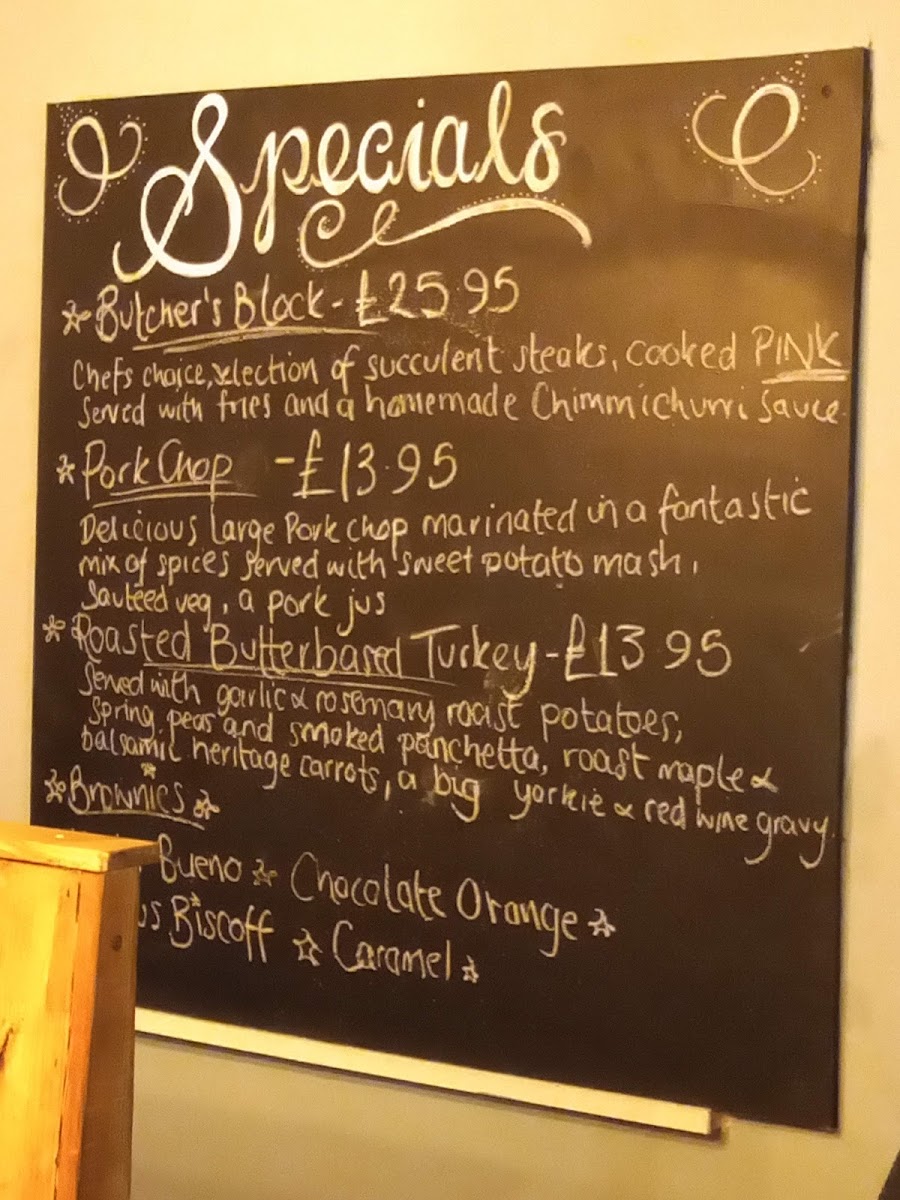 Specials
☆ Butcher's Block - £25.95
Chefs choice, selection of succulent steaks, cooked PINK
Served with fries and a homemade Chimmichurri sauce.
☆ Pork Chop - £13.95
Delicious large Pork chop marinated in a fantastic
mix of spices served with sweet potato mash,
Sauteed veg, a pork jus
☆ Roasted Butterbased Turkey - £13.95
Served with garlic & rosemary roast potatoes,
spring peas and smoked panchetta, roast maple &
balsamic heritage carrots, a big yorkie & red wine gravy.
☆ Brownies ☆
Bueno ☆ Chocolate Orange ☆
Biscoff ☆ Caramel ☆